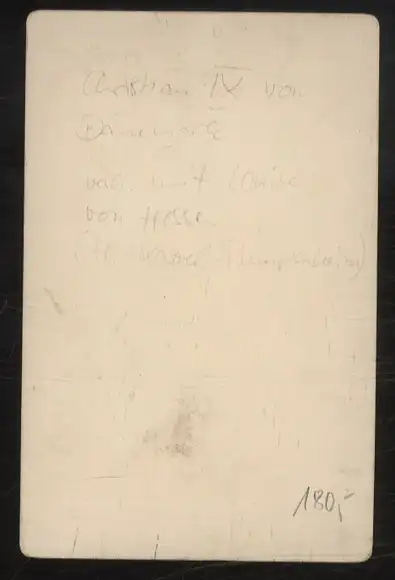 Christian IX von
Dänemark
verh. mit Louise
von Hessen
180,-